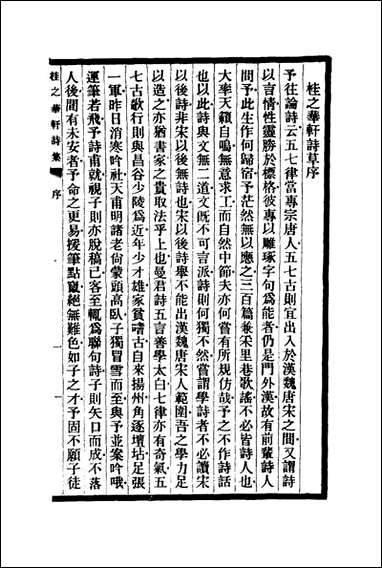 桂之華軒詩草序
予往論詩云五七律當專宗唐人五七古則宜出入於漢魏唐宋之間又謂詩
以言情性靈勝於標格彼專以雕琢字句爲能者仍是門外漢故有前輩詩人
問予此生作何歸宿予茫然無以應之三百篇兼采里巷歌謠不必皆詩人也
大率天籟自鳴無意求工而自然中節夫亦何嘗有所規仿哉予之不作詩話
也以此詩與文無二道文旣不可言派詩則何獨不然嘗謂學詩者不必讀宋
以後詩非宋以後無詩也宋以後詩舉不能出漢魏唐宋人範圍吾之學力足
以造之亦猶書家之貴取法乎上也曼君詩五言善學太白七律亦有奇氣五
七古歌行則與昌谷少陵爲近年少才雄家貧嗜古自來揚州角逐壇坫足張
一軍昨日消寒吟社天甫明諸老尙蒙頭高臥子獨冒雪而至與予並案吟哦
運筆若飛予詩甫就視子則亦脫稿已客至輒爲聯句詩子則矢口而成不落
人後間有未安者予命之更易援筆點竄絕無難色如子之才予固不願子徒
桂之華軒詩集
序